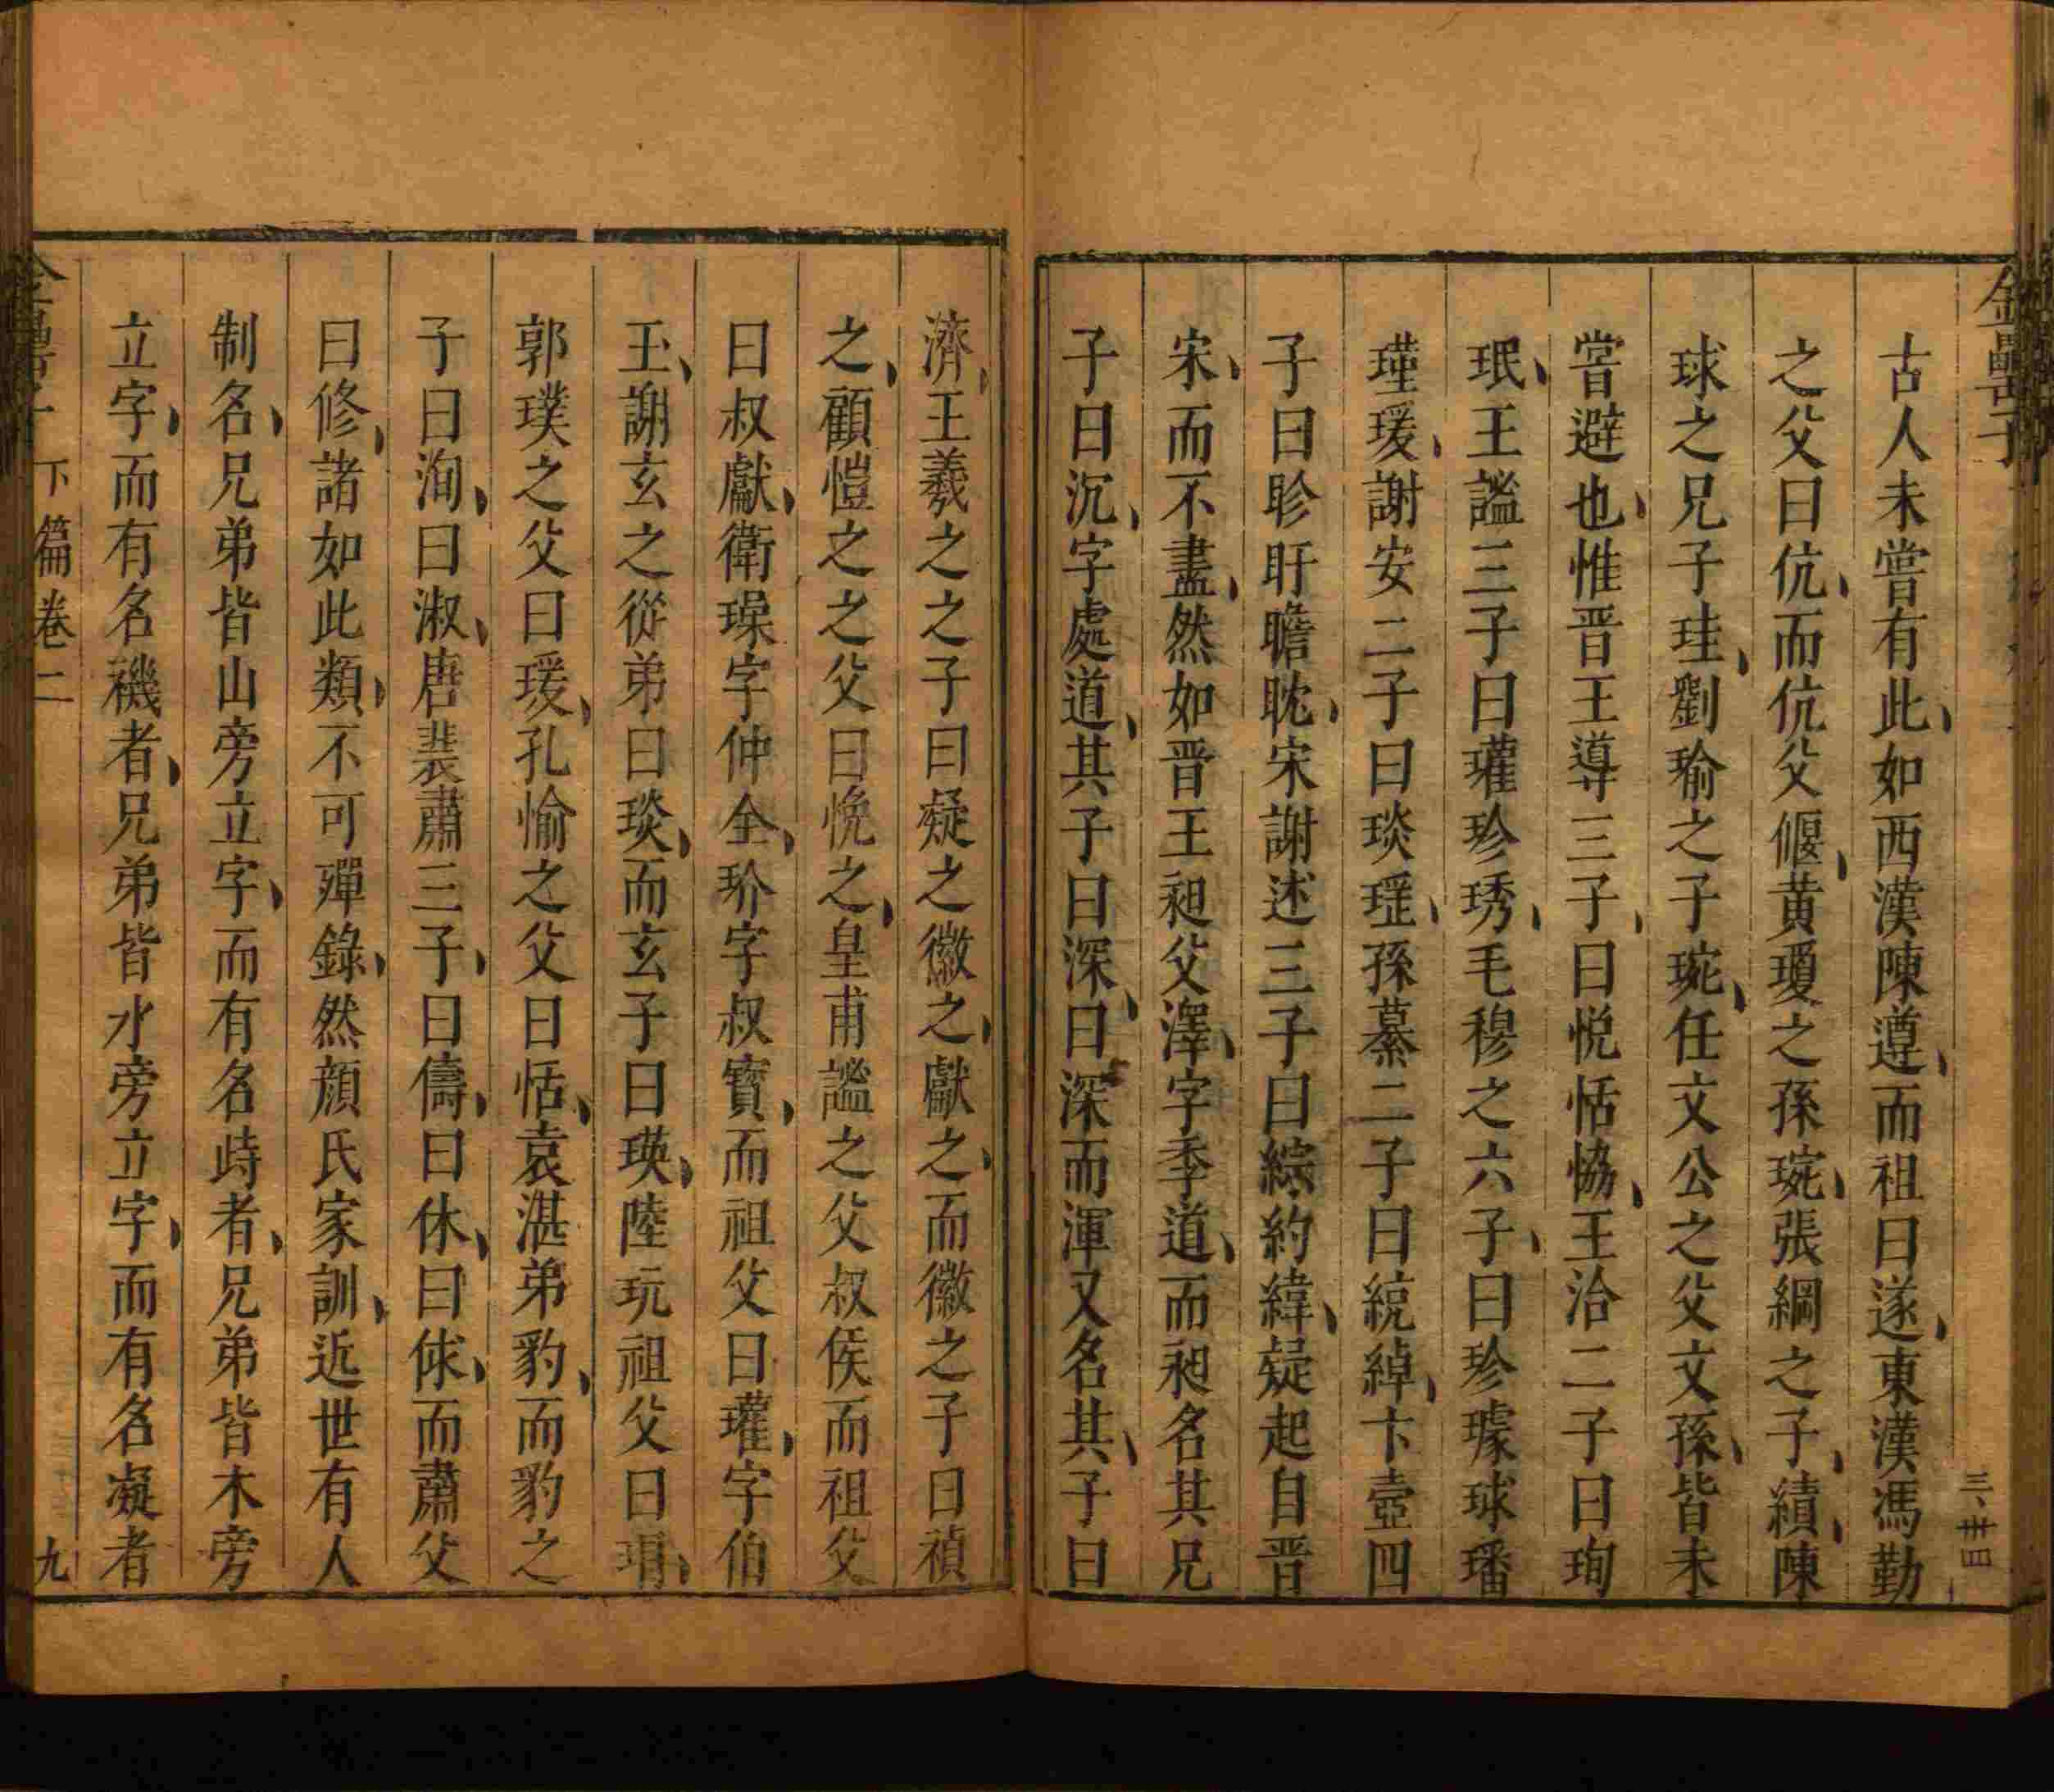 金罍子
古人未嘗有此、如西漢陳遵、而祖曰遂、東漢馮勤
之父曰伉、而伉父偃、黄瓊之孫琬、張綱之子、績、陳
球之兄子珪、劉瑜之子琬、任文公之父文孫、皆未
嘗避也、惟晋王導三子、曰悦恬恊、王洽二子曰珣
珉、王謐三子曰瓘珍琇、毛穆之六子、曰珍璩球璠
瑾瑗、謝安二子曰琰瑶、孫綦二子曰統綽、卞壺四
子曰眕盱瞻眈、宋謝述三子曰綜約緯、疑起自晋
宋、而不盡、然如晋王昶父澤、字季道、而昶名其兄
子曰沉、字處道、其子曰深、曰深而渾又名其、子曰
濟、王羲之之子曰凝之徽之、獻之、而徽之子曰禎
之、顧愷之之父曰悦之、皇甫謐之父叔侯而祖父
曰叔獻、衛璪字仲全、玠字叔寳、而祖父曰瓘、字伯
玉、謝玄之從弟曰琰、而玄子曰瑛、陸玩祖父曰瑁、
郭璞之父曰瑗、孔愉之父曰恬、袁湛弟豹、而豹之
子曰洵、曰淑、唐裴肅三子、曰儔、曰休、曰俅、而肅父
曰修、諸如此類、不可殫錄、然顔氏家訓、近世有人
制名、兄弟皆山旁立字、而有名峙者、兄弟皆木旁
立字、而有名禨者、兄弟皆水旁立字、而有名凝者
下篇卷二
九